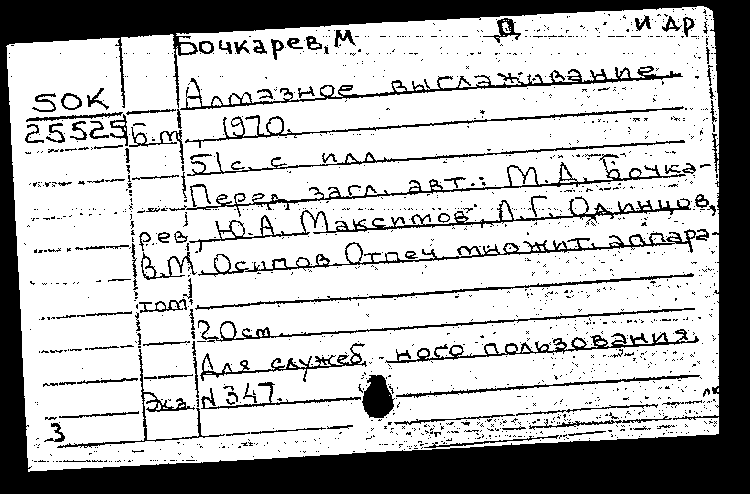 Бочкарев, М. Д. и др
Алмазное выглаживание.
50К
25525 Б.м., 1970.
51 с. с илл.
Перед загл. авт.: М.Д. Бочка-
рев, Ю.А. Максимов, Л.Г. Одинцов,
В.М. Осипов. Отпеч. множит. аппара-
том.
20 см.
Для служебного пользования.
Экз. N 347.
3